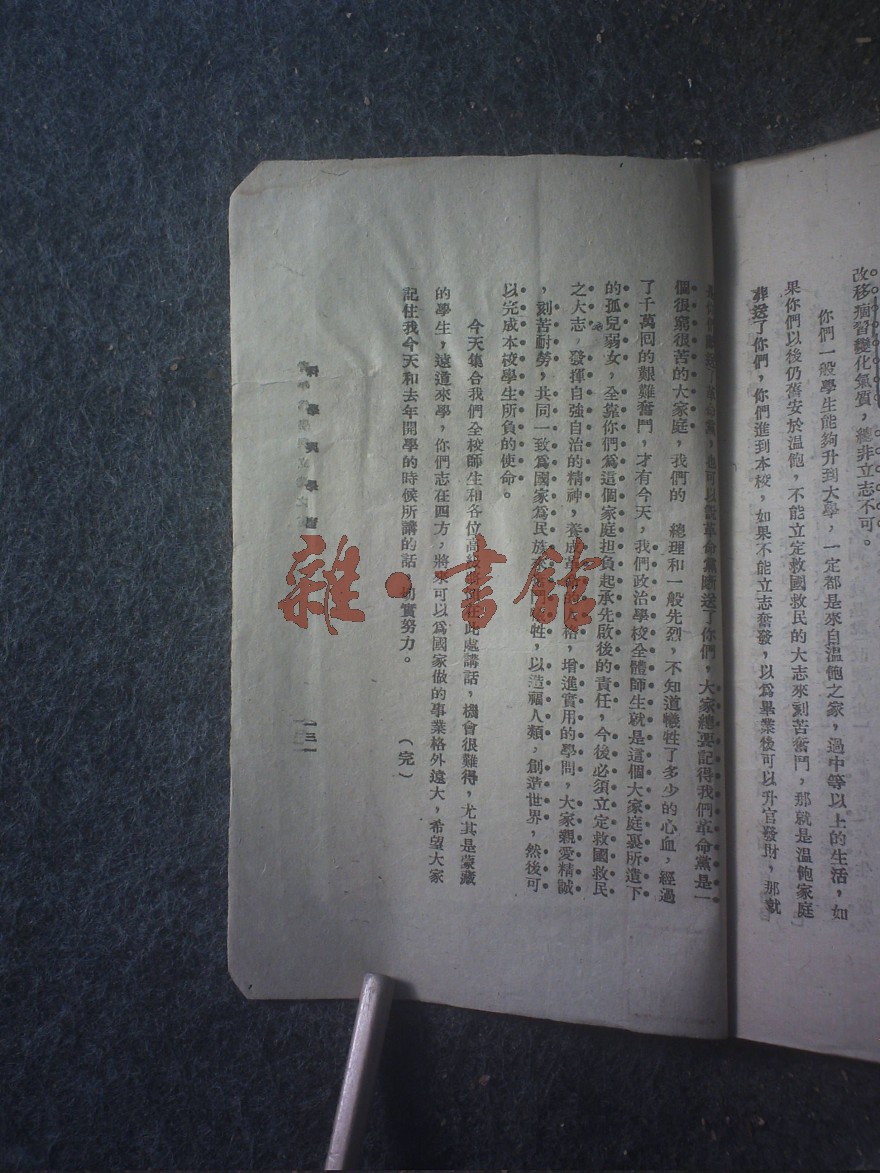 改移痼習變化氣質，總非立志不可。
你們一般學生能夠升到大學，一定都是來自溫飽之家，過中等以上的生活，如
果你們以後仍舊安於溫飽，不能立定救國救民的大志來刻苦奮鬥，那就是溫飽家庭
葬送了你們，你們進到本校，如果不能立志奮發，以爲畢業後可以升官發財，那就
革命黨，也可以說革命黨斷送了你們，大家總要記得我們革命黨是一
個很窮很苦的大家庭，我們的　總理和一般先烈，不知道犧牲了多少的心血，經過
了千萬回的艱難奮鬥，才有今天，我們政治學校全體師生就是這個大家庭裏所遺下
的孤兒弱女，全靠你們爲這個家庭担負起承先啟後的責任，今後必須立定救國救民
之大志，發揮自強自治的精神，養成革命的人格，增進實用的學問，大家親愛精誠
，刻苦耐勞，共同一致爲國家爲民族來奮鬥犧牲，以造福人類，創造世界，然後可
以完成本校學生所負的使命。
今天集合我們全校師生和各位高級在此處講話，機會很難得，尤其是蒙藏
的學生，遠道來學，你們志在四方，將來可以爲國家做的事業格外遠大，希望大家
記住我今天和去年開學的時候所講的話，切實努力。　（完）
一三一
雜·書館